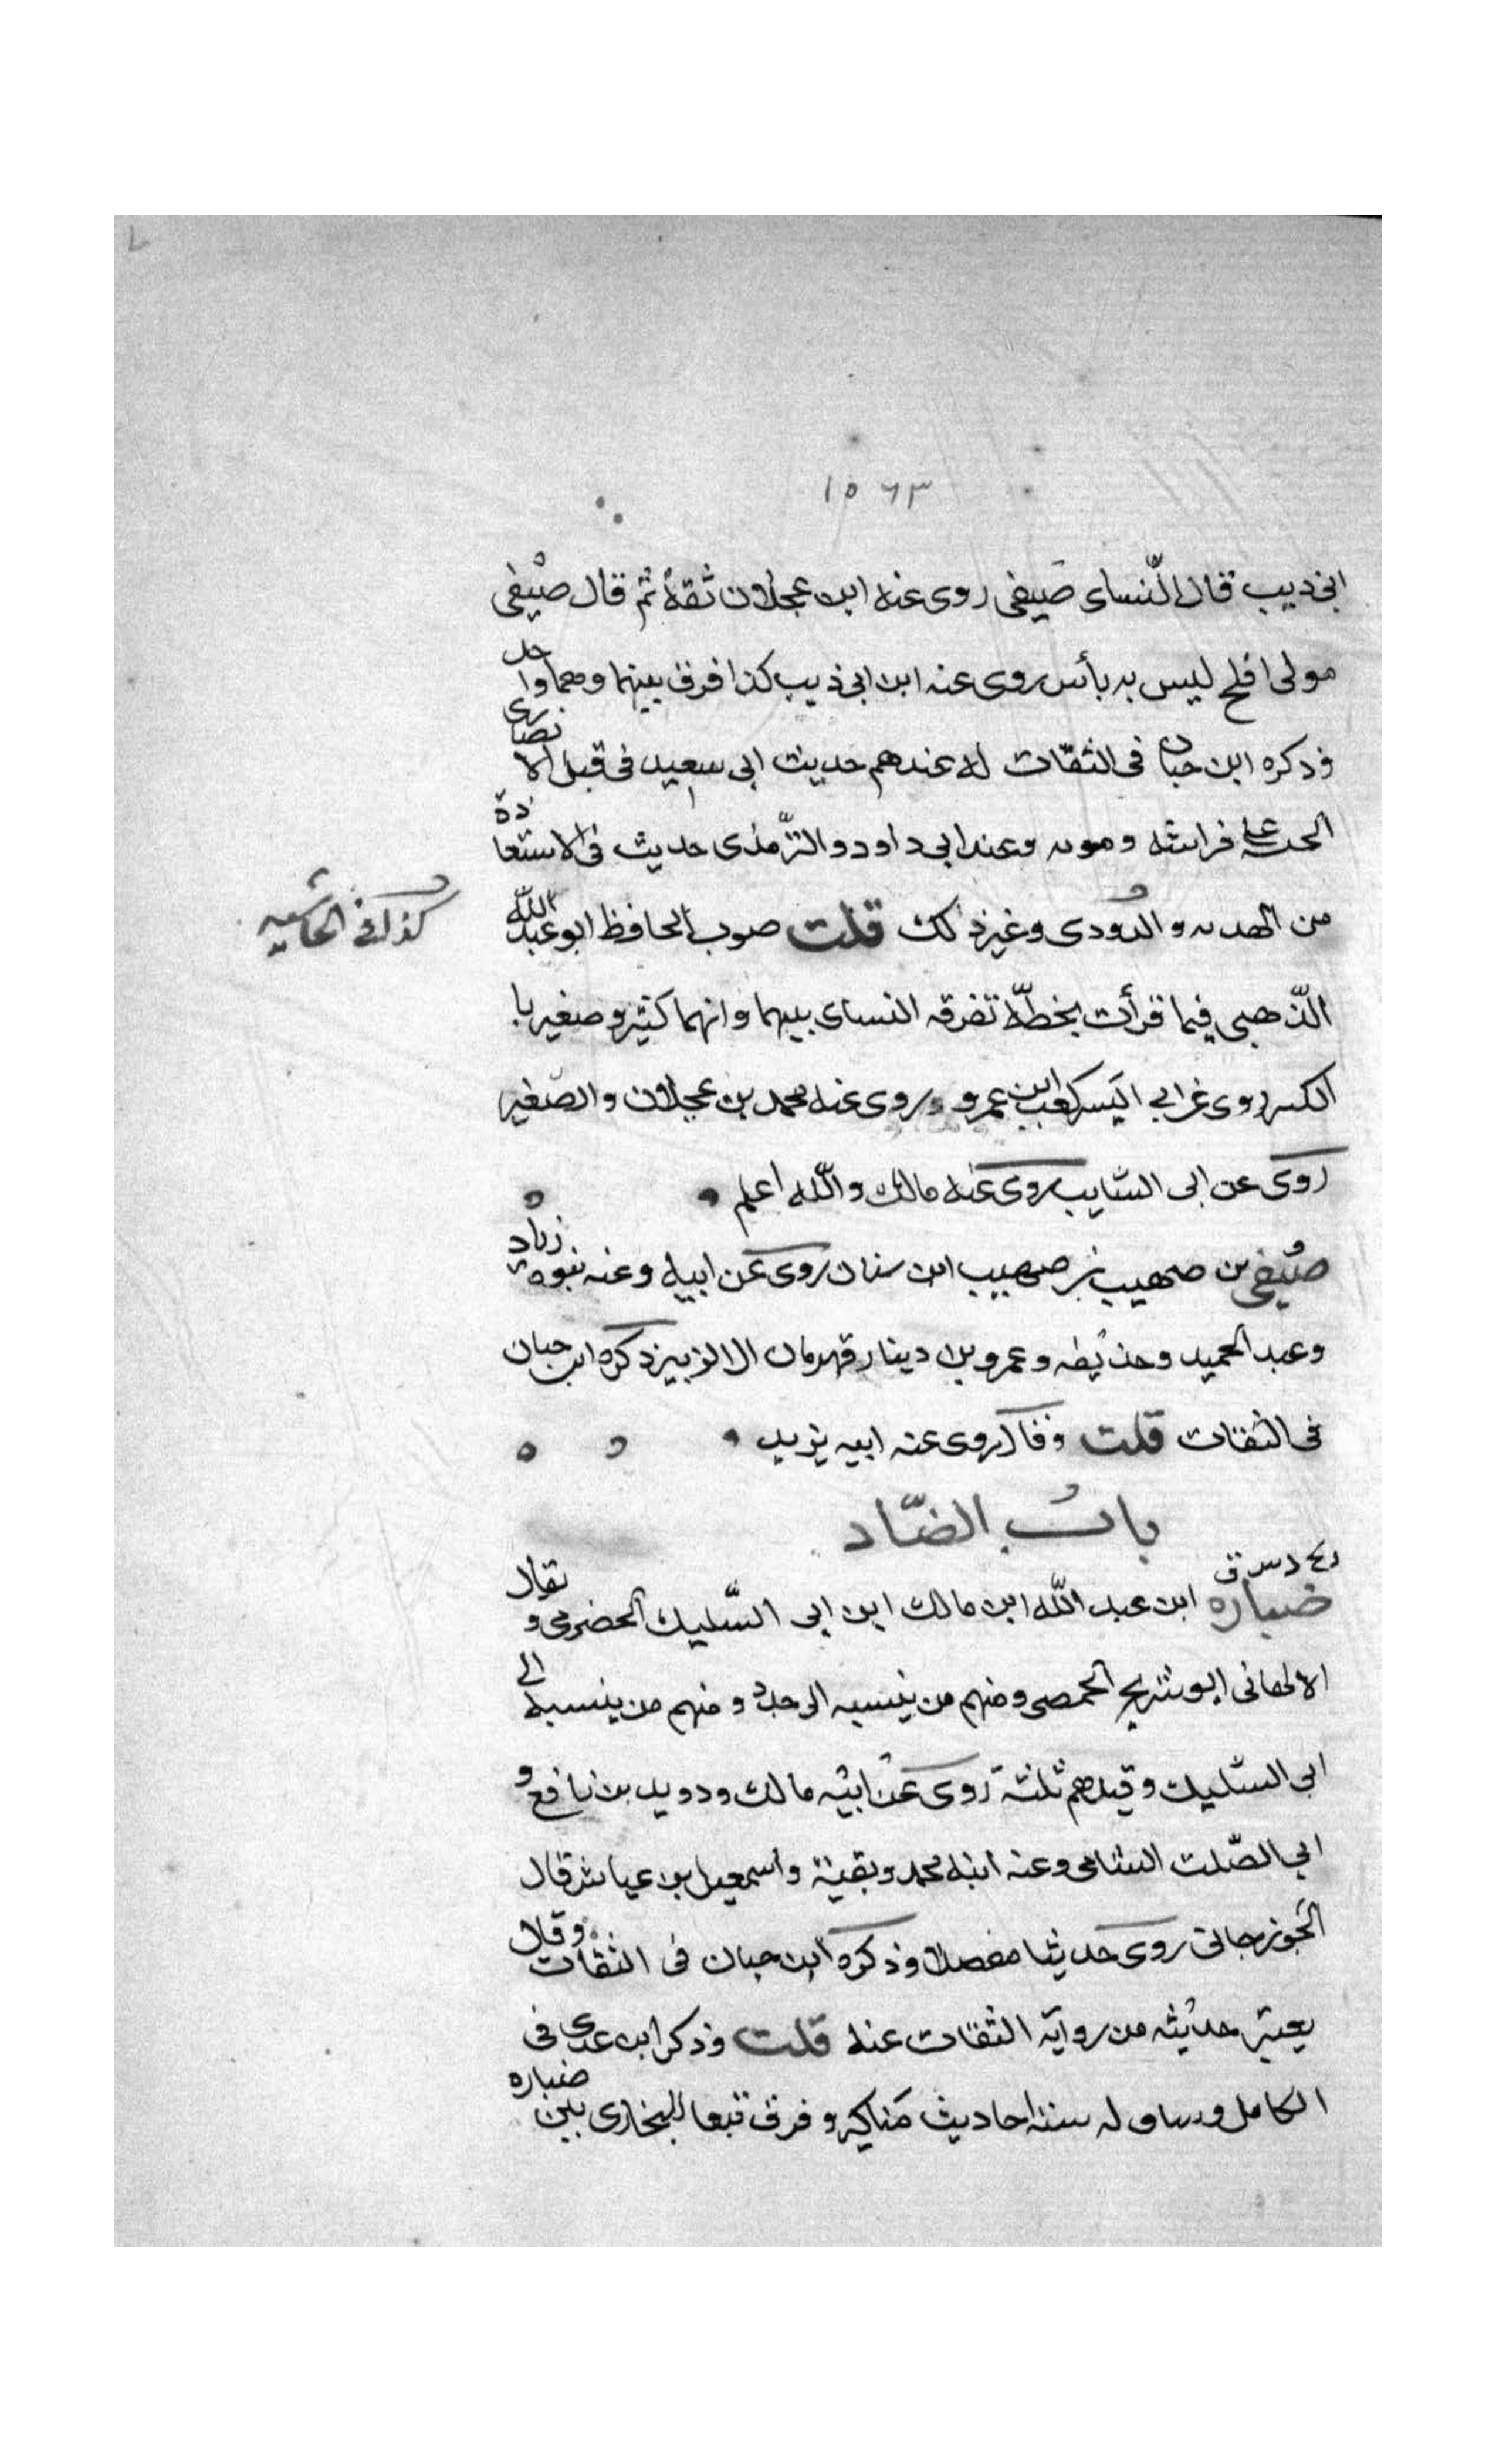 ١٥٦٣
ابى ذيب قال النّساى صَيفى روى عنه ابن عجلان ثقة ثم قال صيْفى
مولى افلح ليس به بأس روى عنه ابن ابى ذيب كذا فرق بينهما وهما واحد
وذكره ابن حبان فى الثقات له عندهم حديث ابى سعيد فى قبل الانصارى
الحية على فراشه وموته وعند ابى داود والترّمذى حديث فى الاستعاذة
من الهدم والتردى وغير ذلك قلت صوب الحافظ ابو عبد الله
كذا فى الحاشيه
الذّهبى فيما قرأت بخطّه تفرقه النساى بينهما وانهما كبير وصغير با
لكبير روى عن ابي اليَسر كعب ابن عمرو وروى عنه محمد بن عجلان والصّغير
روى عن ابى السّايب روى عنه مالك واللّه اعلم
صَيْفى بن صهيب بن صهيب ابن سنان روى عن ابيه وعنه بنوه زياد
وعبد الحميد وحذيفه وعمرو بن دينار قهرمان ال الزبير ذكره ابن حبان
فى الثقات قلت وقال روى عنه ابيه يزيد
باب الضّاد
د س ق
ضباره ابن عبد اللّه ابن مالك ابن ابى السّليك الحضرمى ويقال
الالهانى ابو شريح الحمصى ومنهم من ينسبه الى جده ومنهم من ينسبه الى
ابى السليك وقيلهم ثلثة روى عن ابيه مالك ودويد بن نافع و
ابى الصّلت الشامى وعنه ابنه محمد وبقية واسمعيل بن عياش قال
الجوزجانى روى حديثا مفصلا وذكره ابن حبان فى الثقات وقال
يعتبر حديثه من رواية الثقات عنه قلت وذكر ابن عدى فى
الكامل وساق له ستة احاديث مَناكير وفرق تبعا للبخارى بين ضباره